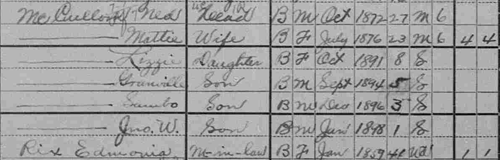 McCullough Ned Head B M Oct 1872 27 M 6
— Mattie Wife B F July 1876 23 M 6 4 4
— Lizzie Daughter B F Oct 1891 8 S
— Granville Son B M Sept 1894 5 S
— Sambo Son B M Dec 1896 3 S
— Jno. W. Son B M Jan 1898 1 S
Rix Edmonia M-in-law B F Jan 1859 Wd 1 1